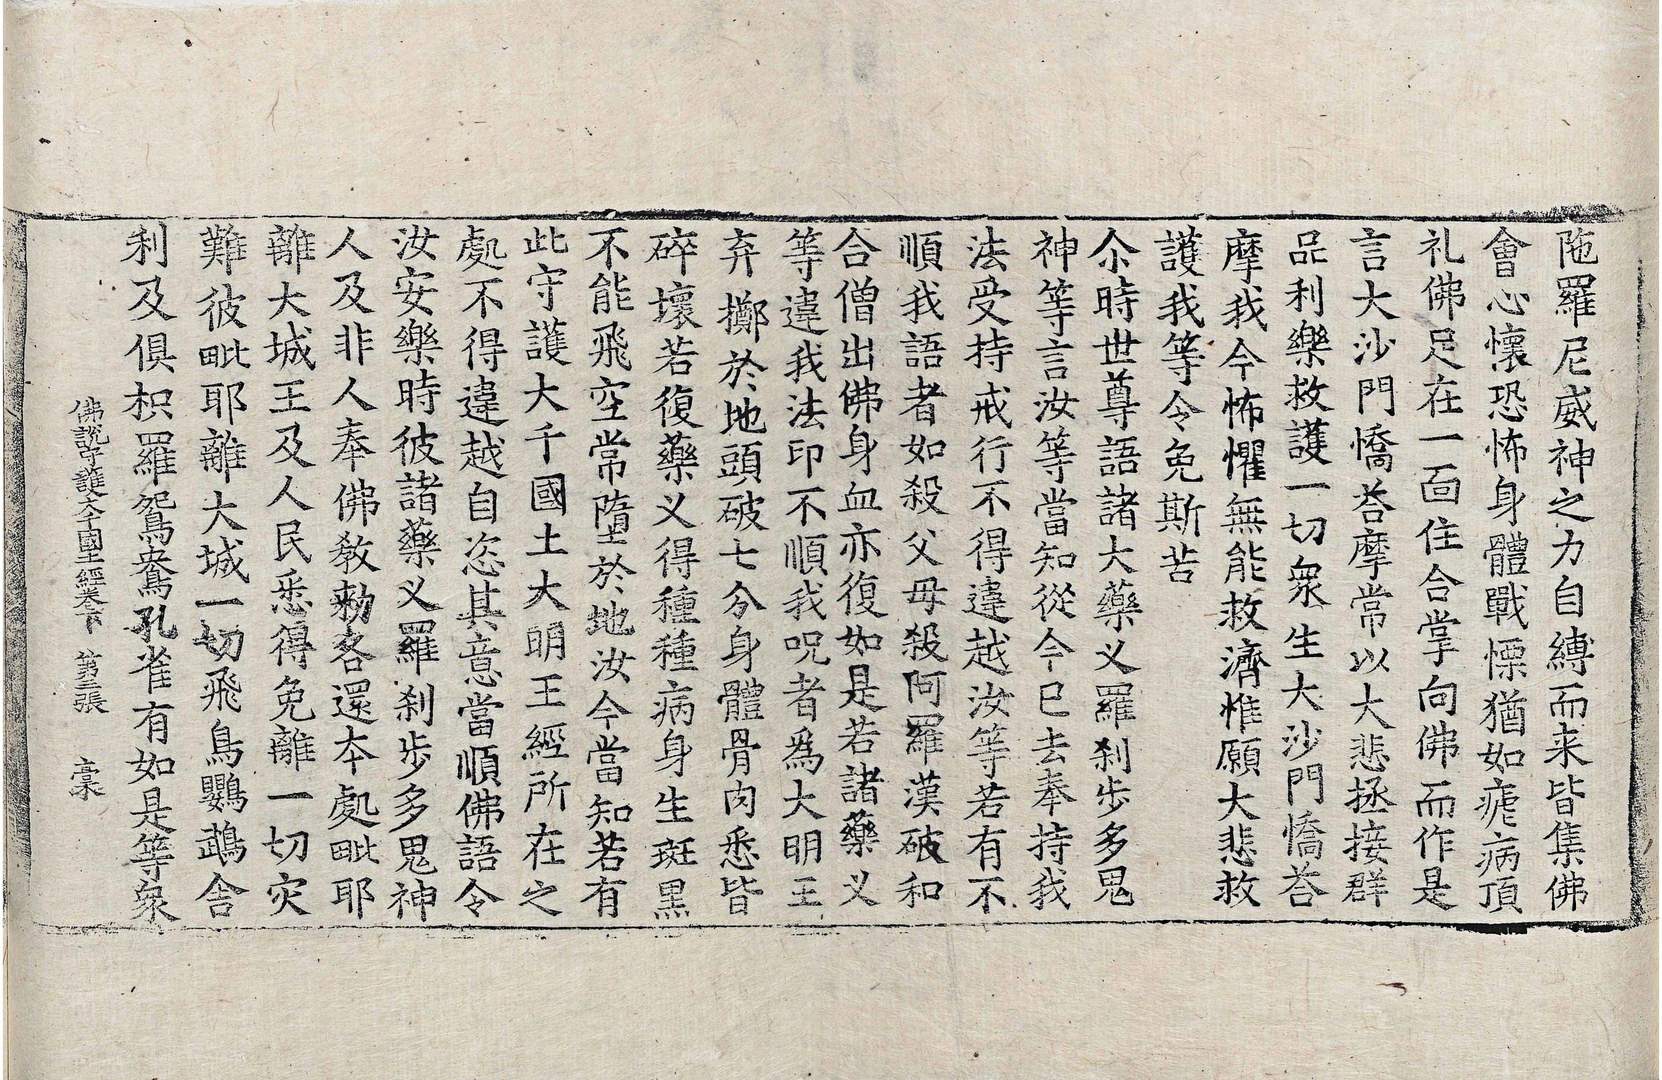 陁羅尼威神之力自縛而来皆集佛
會心懷恐怖身體戰慄猶如瘧病頂
礼佛足在一面住合掌向佛而作是
言大沙門憍荅摩常以大悲拯接群
品利樂救護一切衆生大沙門憍荅
摩我今怖懼無能救濟惟願大悲救
護我等令免斯苦
尒時世尊語諸大藥义羅刹步多鬼
神等言汝等當知從今已去奉持我
法受持戒行不得違越汝等若有不
順我語者如殺父母殺阿羅漢破和
合僧出佛身血亦復如是若諸藥义
等違我法印不順我呪者爲大明王
弃擲於地頭破七分身體骨肉悉皆
碎壞若復藥义得種種病身生斑黑
不能飛空常墮於地汝今當知若有
此守護大千國土大明王經所在之
處不得違越自恣其意當順佛語令
汝安樂時彼諸藥义羅刹步多鬼神
人及非人奉佛敎勑各還本處毗耶
離大城王及人民悉得免離一切灾
難彼毗耶離大城一切飛鳥鸚鵡舍
利及俱枳羅鴛鴦孔雀有如是等衆
佛說守護大千國土經卷下 第三張 稾